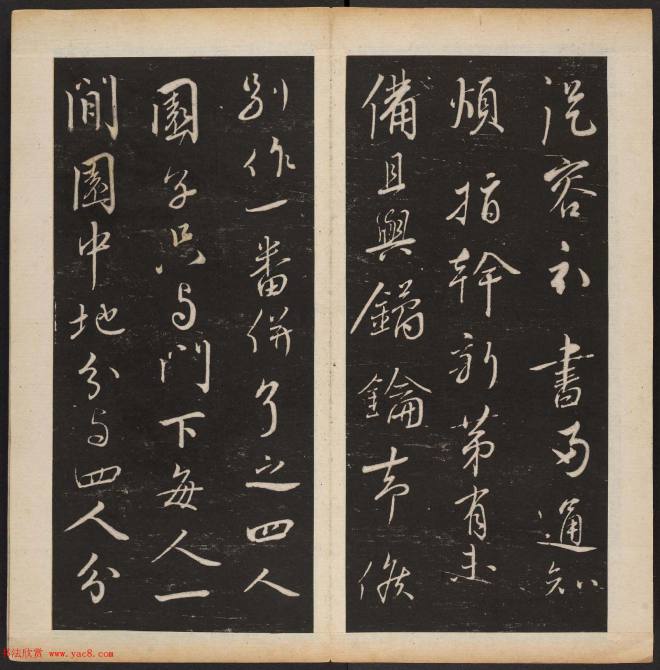 從容示書通知
煩指幹新第有未
備且與鑰俟
別作一番併了之四人
園子只与門下每人一
間園中地分与四人分
书法欣赏 www.yac8.com